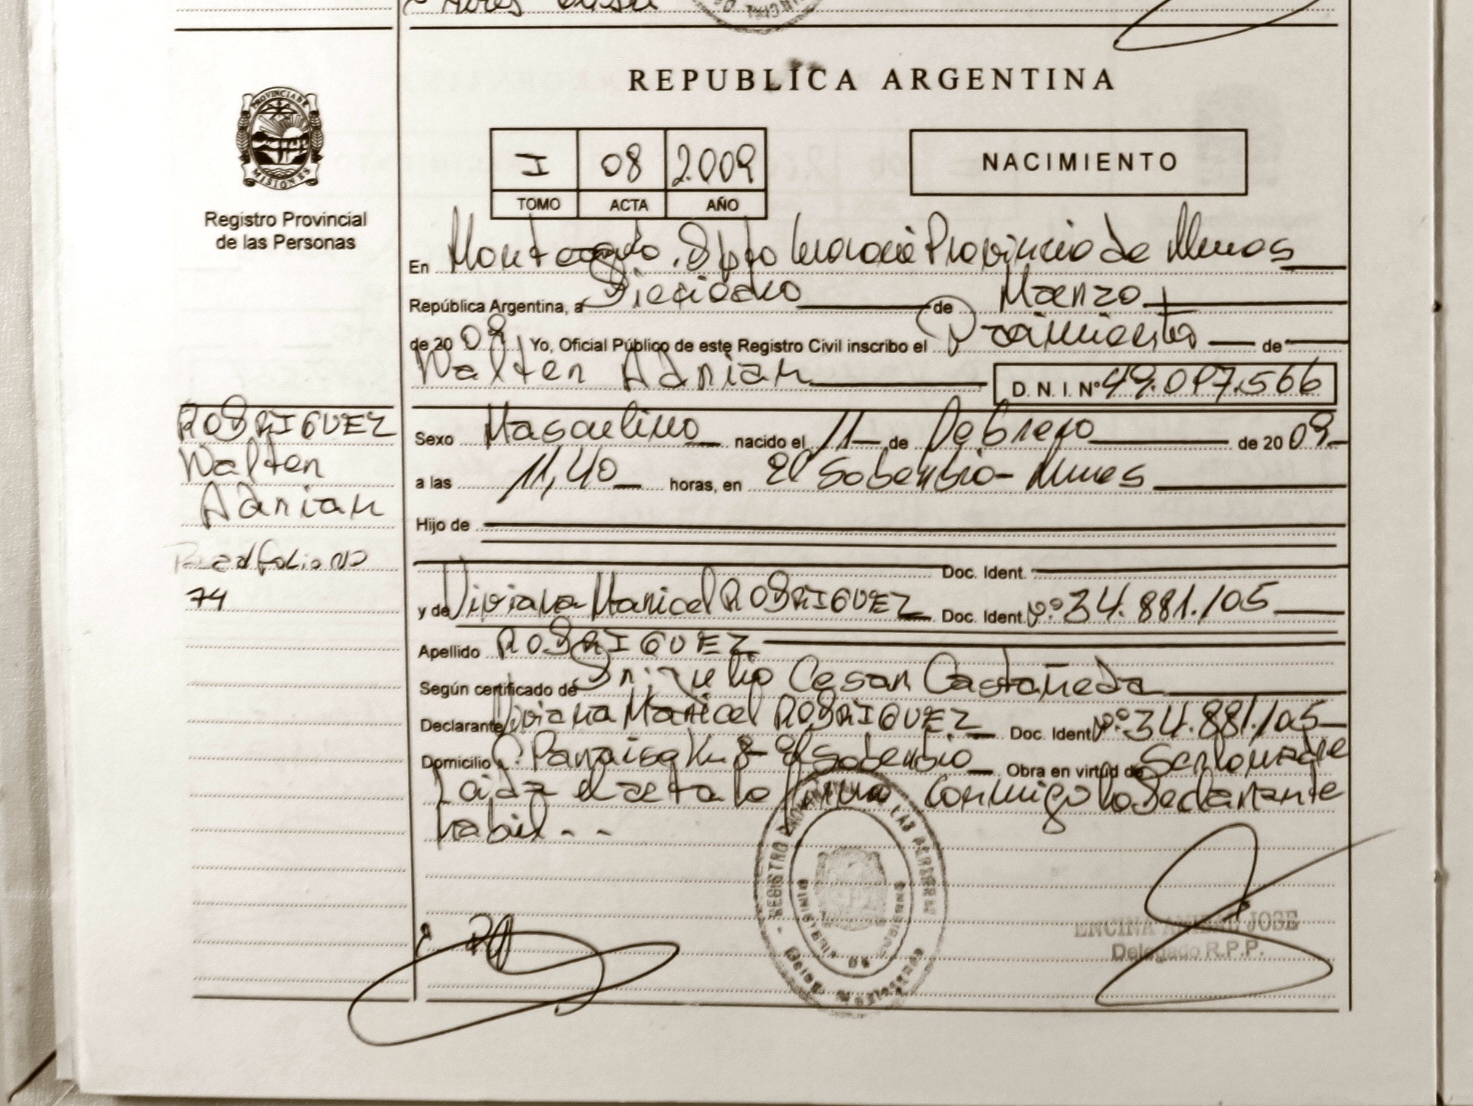 REPUBLICA ARGENTINA
PROVINCIA DE
MISIONES
Registro Provincial
de las Personas
I 08 2009
TOMO ACTA AÑO
NACIMIENTO
En Monteagudo, Dpto Guaraní Provincia de Mnes
República Argentina, a Dieciocho de Marzo
de 2009 Yo, Oficial Público de este Registro Civil inscribo el Nacimiento de
Walter Adrian D. N. I. Nº 49.097.566
RODRIGUEZ
Walter
Adrian
folio Nº
74
Sexo Masculino nacido el 11 de Febrero de 2009
a las 11,40 horas, en El Soberbio - Mnes
Hijo de
Doc. Ident.
y de Viviana Maricel RODRIGUEZ Doc. Ident. Nº 34.881.105
Apellido RODRIGUEZ
Según certificado de Dr. Julio Cesar Castañeda
Declarante Viviana Maricel RODRIGUEZ Doc. Ident. Nº 34.881.105
Domicilio Paraiso Km 8 - El Soberbio Obra en virtud de Ser la madre
Leida el acta la firma conmigo la declarante
habil - -
ENCINA JOSE
Delegado R.P.P.